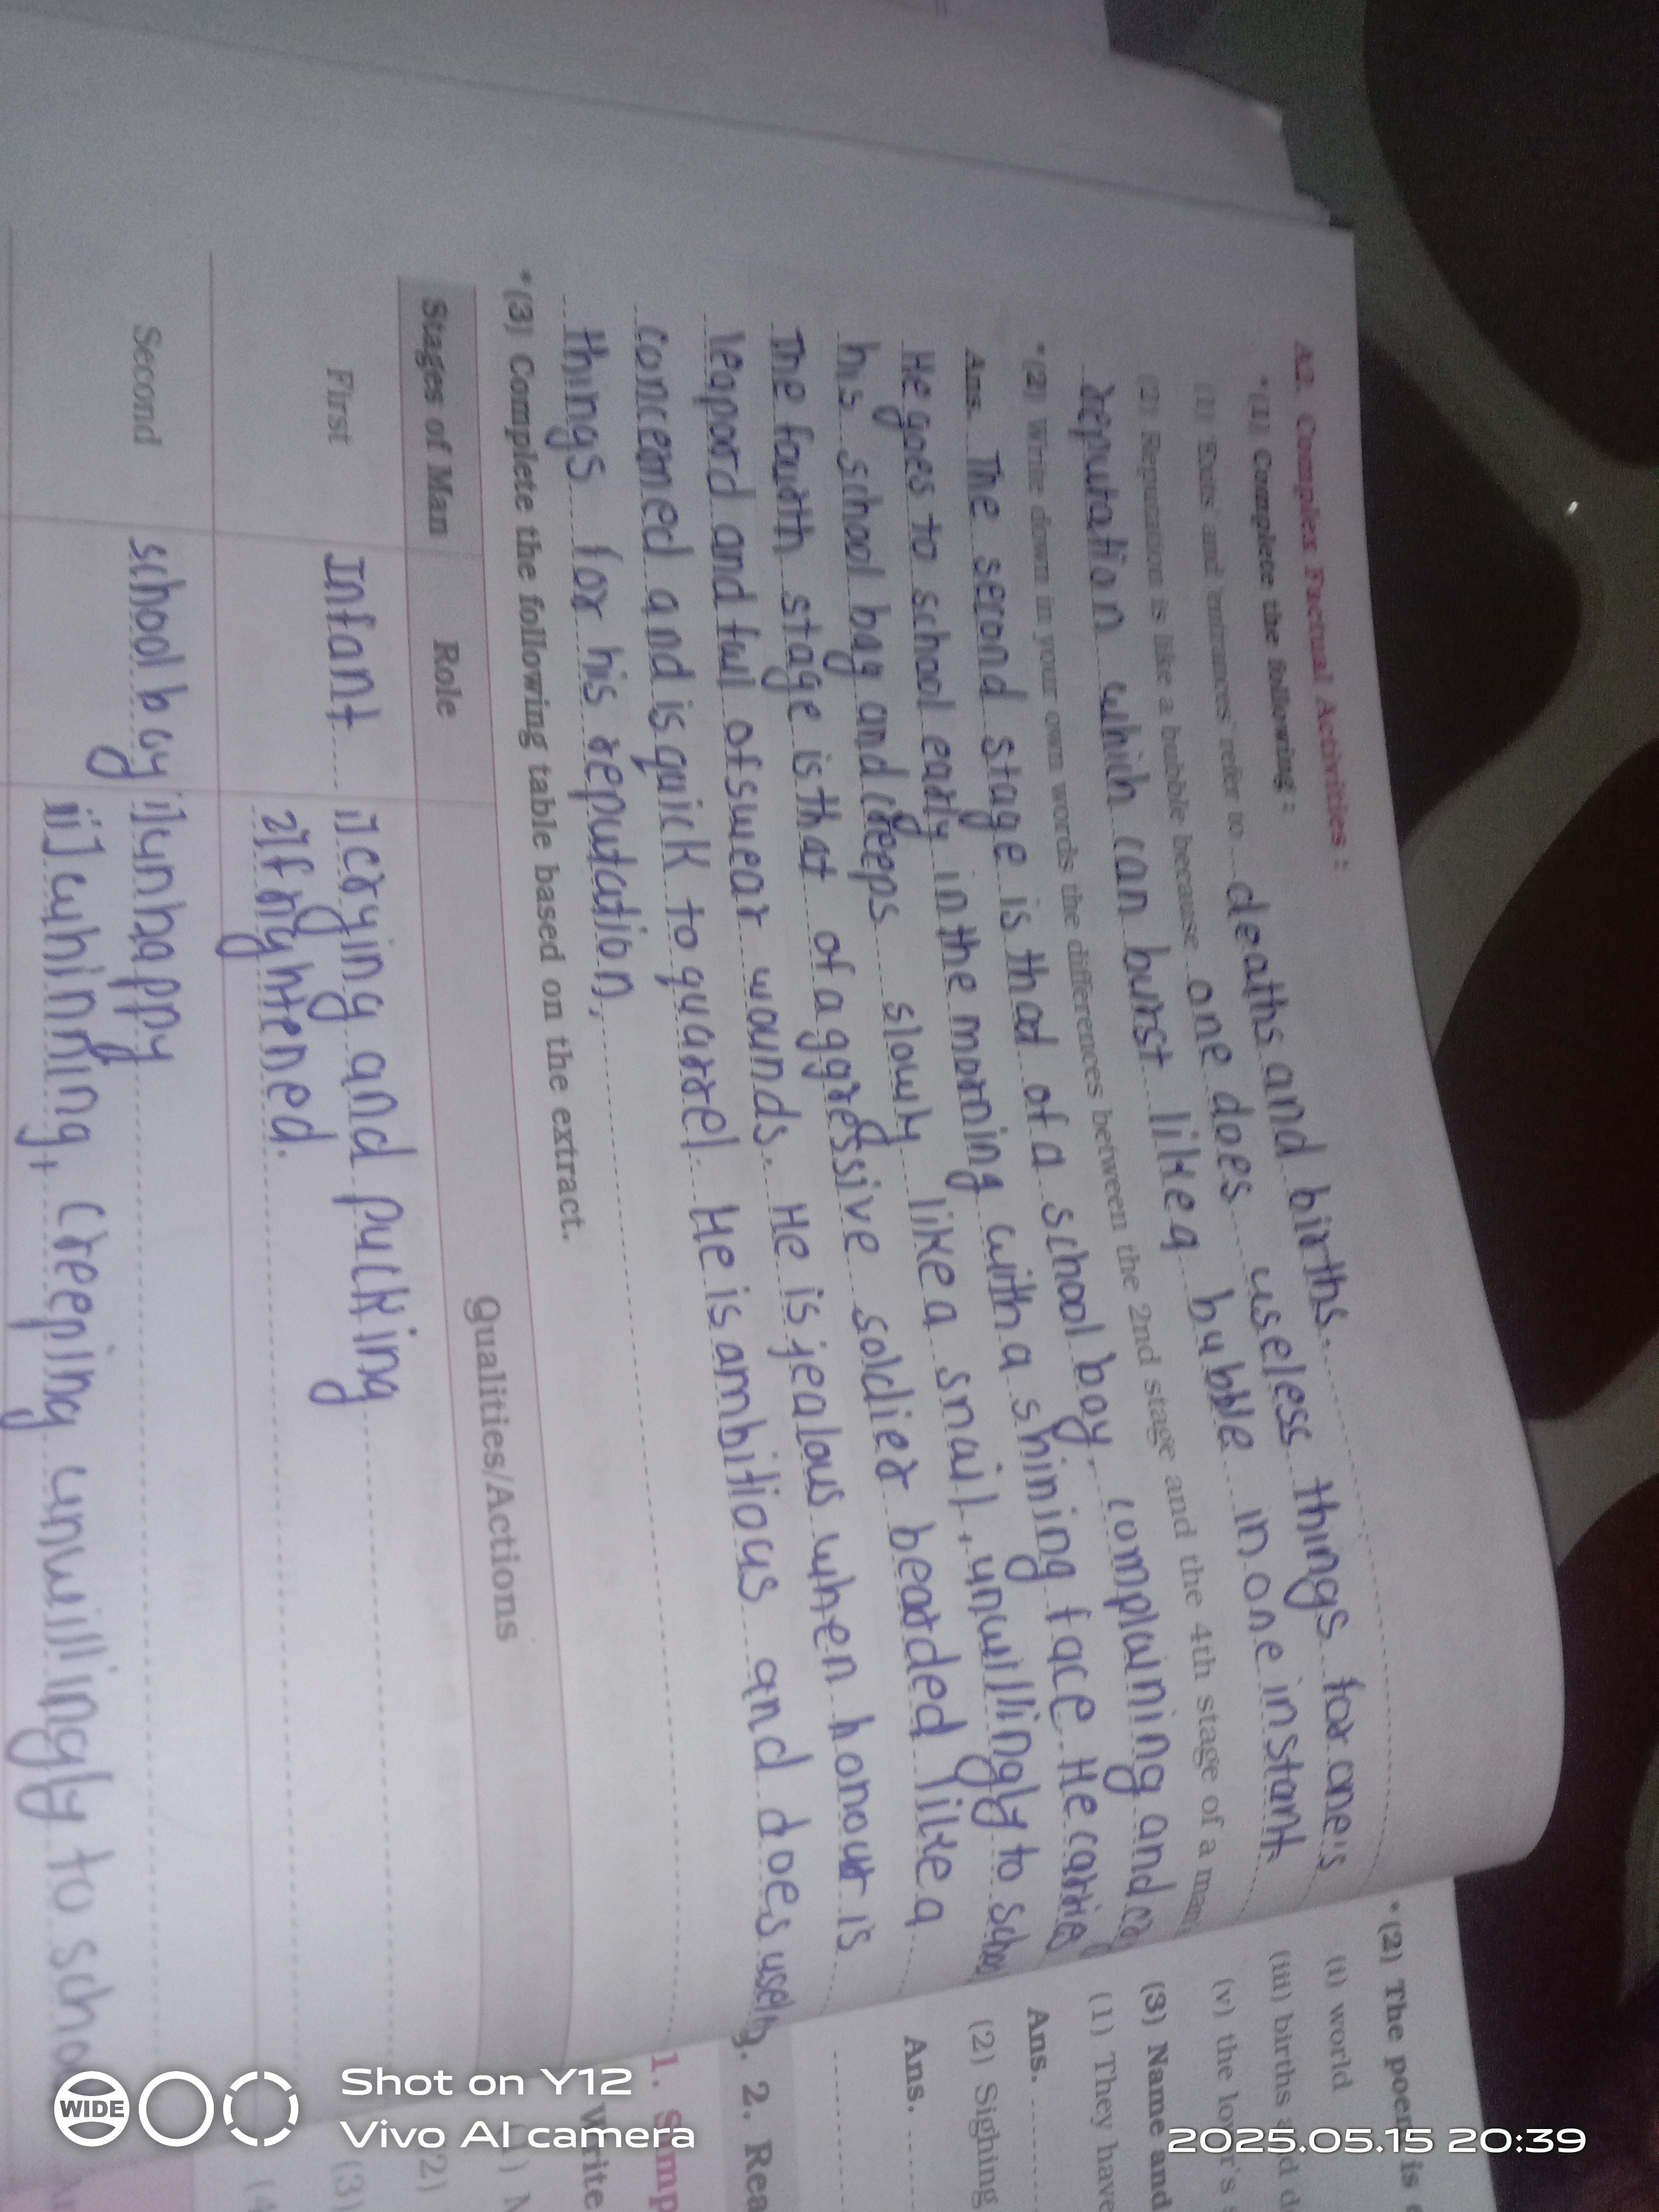 A2. Complex Factual Activities :
*(1) Complete the following :
(1) 'Exits' and 'entrances' refer to deaths and births.
(2) Reputation is like a bubble because one does useless things for one's
reputation which can burst like a bubble in one instant.
*(2) Write down in your own words the differences between the 2nd stage and the 4th stage of a man
Ans. The second stage is that of a school boy, complaining and
He goes to school early in the morning with a shining face He carries
his school bag and creeps slowly like a snail, unwillingly to
The fourth stage is that of aggressive soldier bearded like a
leopord and full of swear wounds. He is jealous when honour is
concerned and is quick to quarrel. He is ambitious and does
things for his reputation,
*(3) Complete the following table based on the extract.
Stages of Man Role Qualities/Actions
First Infant i] crying and pucking
2] frightened.
Second school boy i] unhappy
ii] whinning, creeping unwillingly to
*(2) The poem is
(i) world
(iii) births
(v) the lover's
(3) Name and
(1) They have
Ans.
(2) Sighing
Ans.
2.
1.
Write
(3)
WIDE
Shot on Y12
Vivo AI camera
2025.05.15 20:39